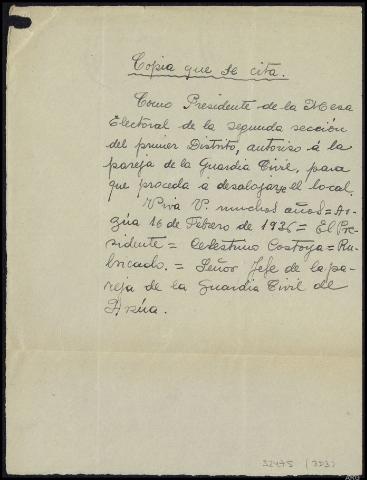 Copia que se cita.
Como Presidente de la Mesa
Electoral de la segunda sección
del primer Distrito, autoriso á la
pareja de la Guardia Civil, para
que proceda á desalojar el local.
Viva V. muchos años = Ar-
zúa 16 de Febrero de 1936 = El Pre-
sidente = Celestino Costoya = Ru-
bricado. = Señor Jefe de la pa-
reja de la Guardia Civil de
Arzúa.
32475